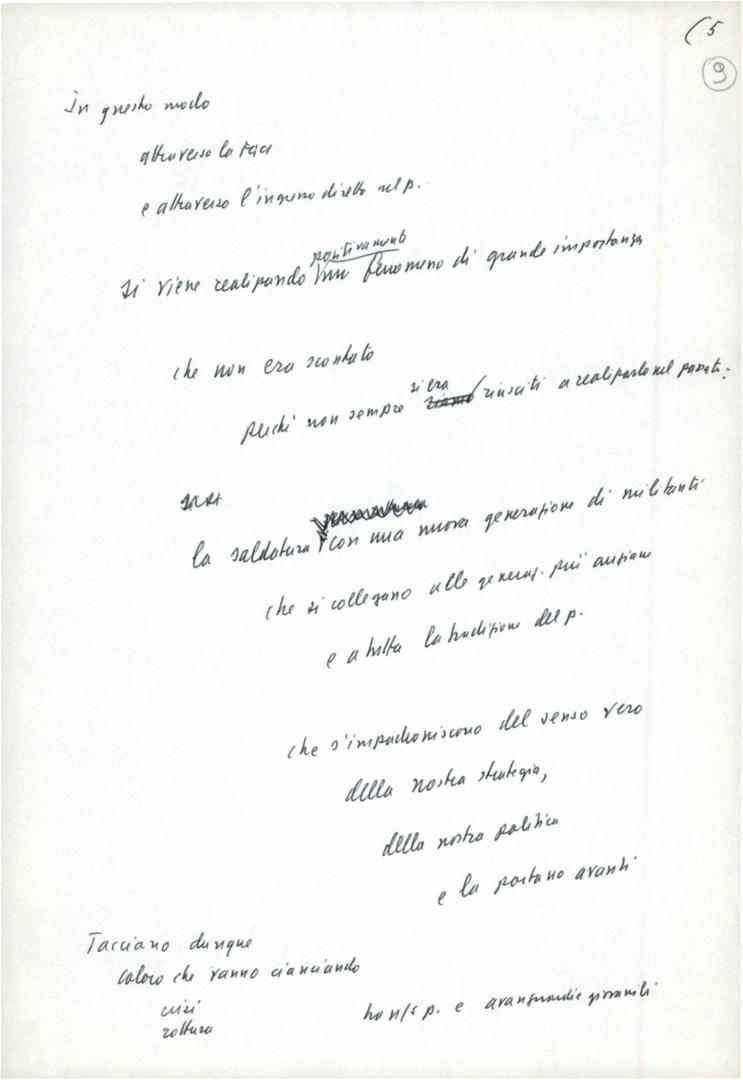 (5
9
In questo modo
attraverso la FGCI
e attraverso l'ingresso diretto nel p.
positivamente
si viene realizzando un fenomeno di grande importanza
che non era scontato
si era
perché non sempre siamo riusciti a realizzarlo nel passato:
la saldatura con una nuova generazione di militanti
che si collegano alle generaz. più anziane
e a tutta la tradizione del p.
che s'impadroniscono del senso vero
della nostra strategia,
della nostra politica
e la portano avanti
Tacciano dunque
coloro che vanno cianciando
crisi
rottura
tra n/s p. e avanguardie giovanili